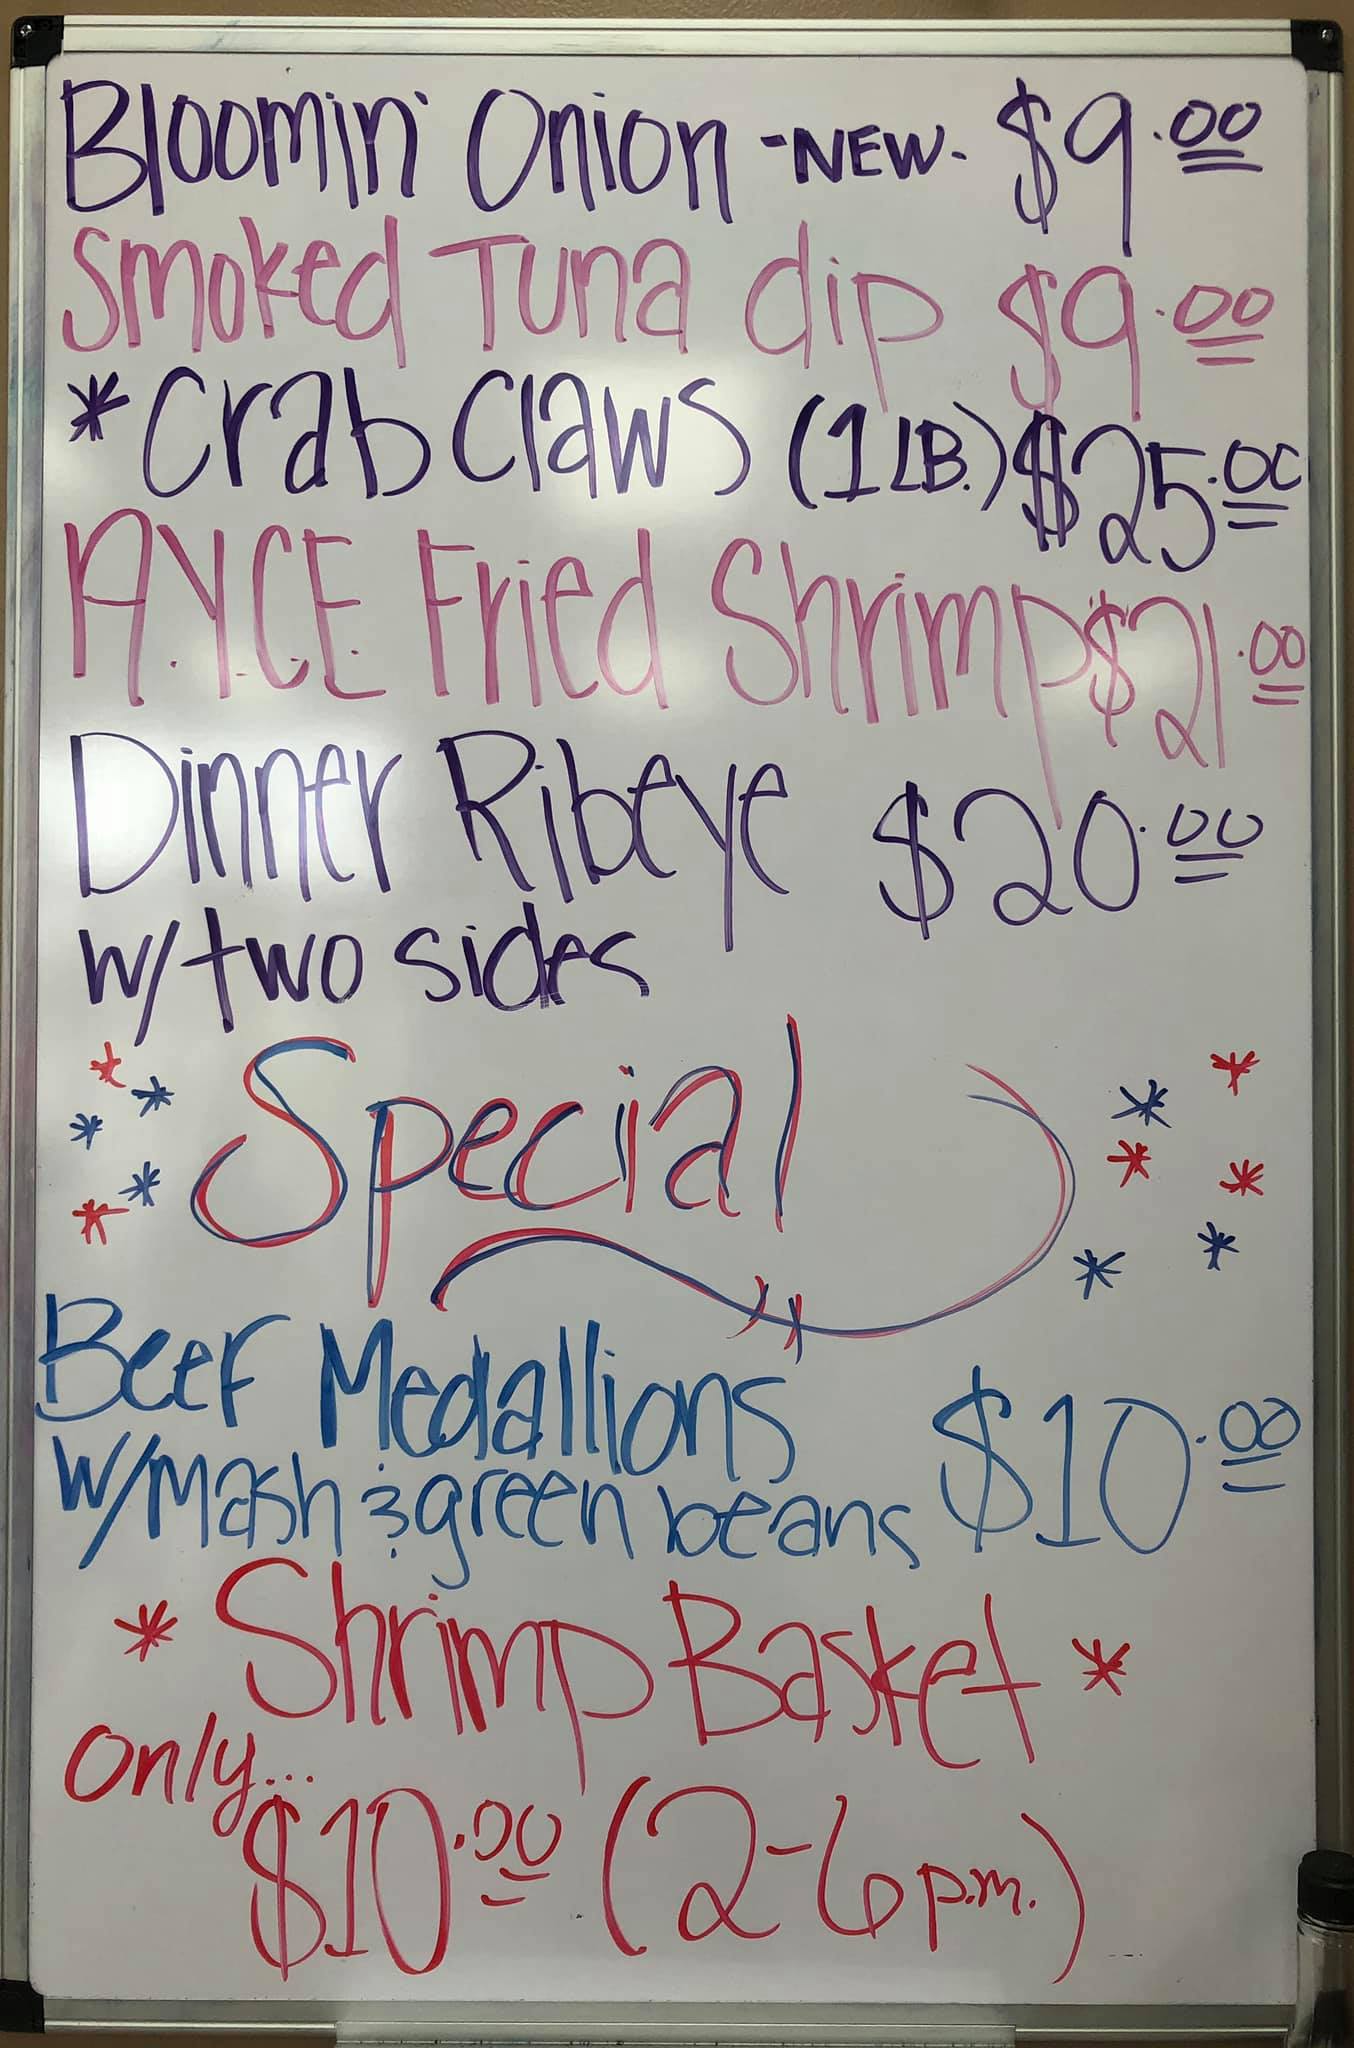 Bloomin' Onion -NEW- $9.00
Smoked Tuna dip $9.00
*Crab Claws (1 LB.) $25.00
A.Y.C.E. Fried Shrimp $21.00
Dinner Ribeye $20.00
w/two sides
Special
Beef Medallions $10.00
w/mash & green beans
* Shrimp Basket *
only...
$10.00 (2-6 p.m.)